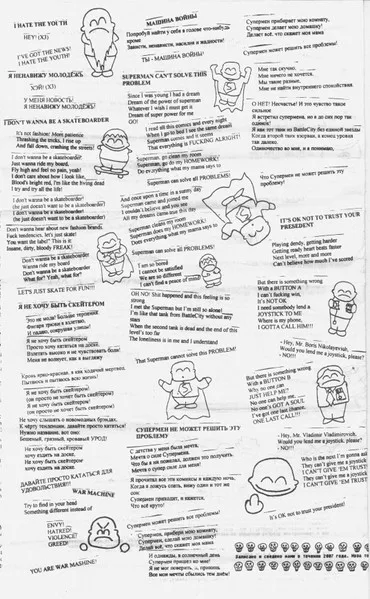 I HATE THE YOUTH
HEY! (X3)
I'VE GOT THE NEWS!
I HATE THE YOUTH!
Я НЕНАВИЖУ МОЛОДЁЖЬ
ЭЭЙ! (X3)
У МЕНЯ НОВОСТЬ!
Я НЕНАВИЖУ МОЛОДЁЖЬ!
I DON'T WANNA BE A SKATEBOARDER
It's not fashion! More patience
Thrashing the tricks, I rise up
And fall down, crashing the streets!
I don't wanna be a skateboarder!
Just wanna ride my board.
Fly high and feel no pain, yeah!
I don't care about how I look like.
Blood's bright red, I'm like the living dead
I try and try all the life!
I don't wanna be a skateboarder!
(he just doesn't want to be a skateboarder)
I don't wanna be a skateboarder!
(he just doesn't want to be a skateboarder)
Don't wanna hear about new fashion brands.
Fuck tendences, let's just skate!
You want the label? This is it:
Insane, dirty, bloody FREAK!
Don't wanna be a skateboarder
Wanna ride my board
Don't wanna be a skateboarder!
What for? Yeah, what for?
LET'S JUST SKATE FOR FUN!!!
Я НЕ ХОЧУ БЫТЬ СКЕЙТЕРОМ
Это не мода! Больше терпения
И падаю, сокрушая улицы!
Я не хочу быть скейтером!
Просто хочу кататься на доске.
Взлетать высоко и не чувствовать боли!
Меня не волнует, как я выгляжу
Кровь ярко-красная, я как ходячий мертвец
Пытаюсь и пытаюсь всю жизнь!
Я не хочу быть скейтером!
(он просто не хочет быть скейтером)
Я не хочу быть скейтером!
(он просто не хочет быть скейтером)
Не хочу слышать о новомодных брэндах.
К чёрту тенденции, давайте просто кататься!
Нужно название, вот оно:
Безумный, грязный, кровавый УРОД!
Не хочу быть скейтером
хочу ездить на доске.
Не хочу быть скейтером
ДАВАЙТЕ ПРОСТО КАТАТЬСЯ ДЛЯ УДОВОЛЬСТВИЯ!!!
WAR MACHINE
Try to find in your head
Something different instead of
ENVY!
HATRED!
VIOLENCE!
GREED!
YOU ARE WAR MACHINE!
МАШИНА ВОЙНЫ
Попробуй найти у себя в голове что-нибудь
кроме
Зависти, ненависти, насилия и жадности!
ТЫ - МАШИНА ВОЙНЫ!
SUPERMAN CAN'T SOLVE THIS
PROBLEM
Since I was young I had a dream
Dream of the power of superman
Whatever I wish I must get it
Dream of super power for me
GO!
I read all this comics and every night
When I go to bed I see the same dream
Superman comes and it seems
That everything is FUCKING ALRIGHT!
Superman, go clean my room
Superman, go do my HOMEWORK!
Do everything what my mama says to
Superman can solve all PROBLEMS!
And once upon a time in a sunny day
Superman came and joined me
I couldn't believe and you see
All my dreams came true this day
Superman cleans my room
Superman does my HOMEWORK!
Does everything what my mama says to
Superman can solve all PROBLEMS!
I am so bored
I cannot be satisfied
We are so different
I can't find a peace of mind
OH NO! Shit happened and this feeling is so
strong
I met the Superman but I'm still so alone!
I'm like that tank from BattleCity without any
stars
When the second tank is dead and the end of this
level's too far
The loneliness is in me and I understand
That Superman cannot solve this PROBLEM!
СУПЕРМЕН НЕ МОЖЕТ РЕШИТЬ ЭТУ
ПРОБЛЕМУ
С детства у меня была мечта,
Мечта о силе Супермена.
Что бы я ни пожелал, должен это получить.
Мечта о супер силе для меня!
Я прочитал все эти комиксы и каждую ночь,
Когда я ложусь спать, вижу один и тот же
сон:
Супермен приходит, и кажется,
Что всё круто!
Супермен, прибери мою комнату,
Супермен, сделай мою домашку!
Делай всё, что скажет моя мама
Супермен может решить все проблемы!
И однажды, в солнечный день
Супермен пришел ко мне!
Все мои мечты сбылись тем днём!
Супермен прибирает мою комнату,
Супермен делает мою домашку!
Делает всё, что скажет моя мама
Супермен может решить все проблемы!
Мне так скучно,
Мне ничего не хочется.
Мы такие разные,
Мне не найти внутреннего спокойствия.
О НЕТ! Несчастье! И это чувство такое
сильное
Я встретил супермена, но я до сих пор так
одинок!
Я как тот танк из BattleCity без единой звезды
Когда второй танк взорван, а конец уровня
так далеко.
Одиночество во мне, и я понимаю,
Что Супермен не может решить эту
проблему!
IT'S OK NOT TO TRUST YOUR
PRESEDENT
Playing dendy, getting harder
Getting ready heart beats faster
Next level, more and more
Can't believe how much I've scored
But there is something wrong
With a BUTTON A
I can't fucking win,
It's NOT OK
I need somebody lend a
JOYSTICK TO ME
Where is my phone,
I GOTTA CALL HIM!!!
- Hey, Mr. Boris Nikolayevich,
Would you lend me a joystick, please?
- NO!!!
But there is something wrong
With a BUTTON B
JUST HELP ME!
No one can help me,
No one's GOT A SOUL
I've got one last chance,
ONE LAST CALL!!!
- Hey, Mr. Vladimir Vladimirovich,
Would you lend me a joystick, please?
- NO!!!
Who is the next I'm gonna ask
They can't give me a joystick
I CAN'T GIVE 'EM TRUST!
They can't give me a joystick
I CAN'T GIVE 'EM TRUST!
It's OK not to trust your president!